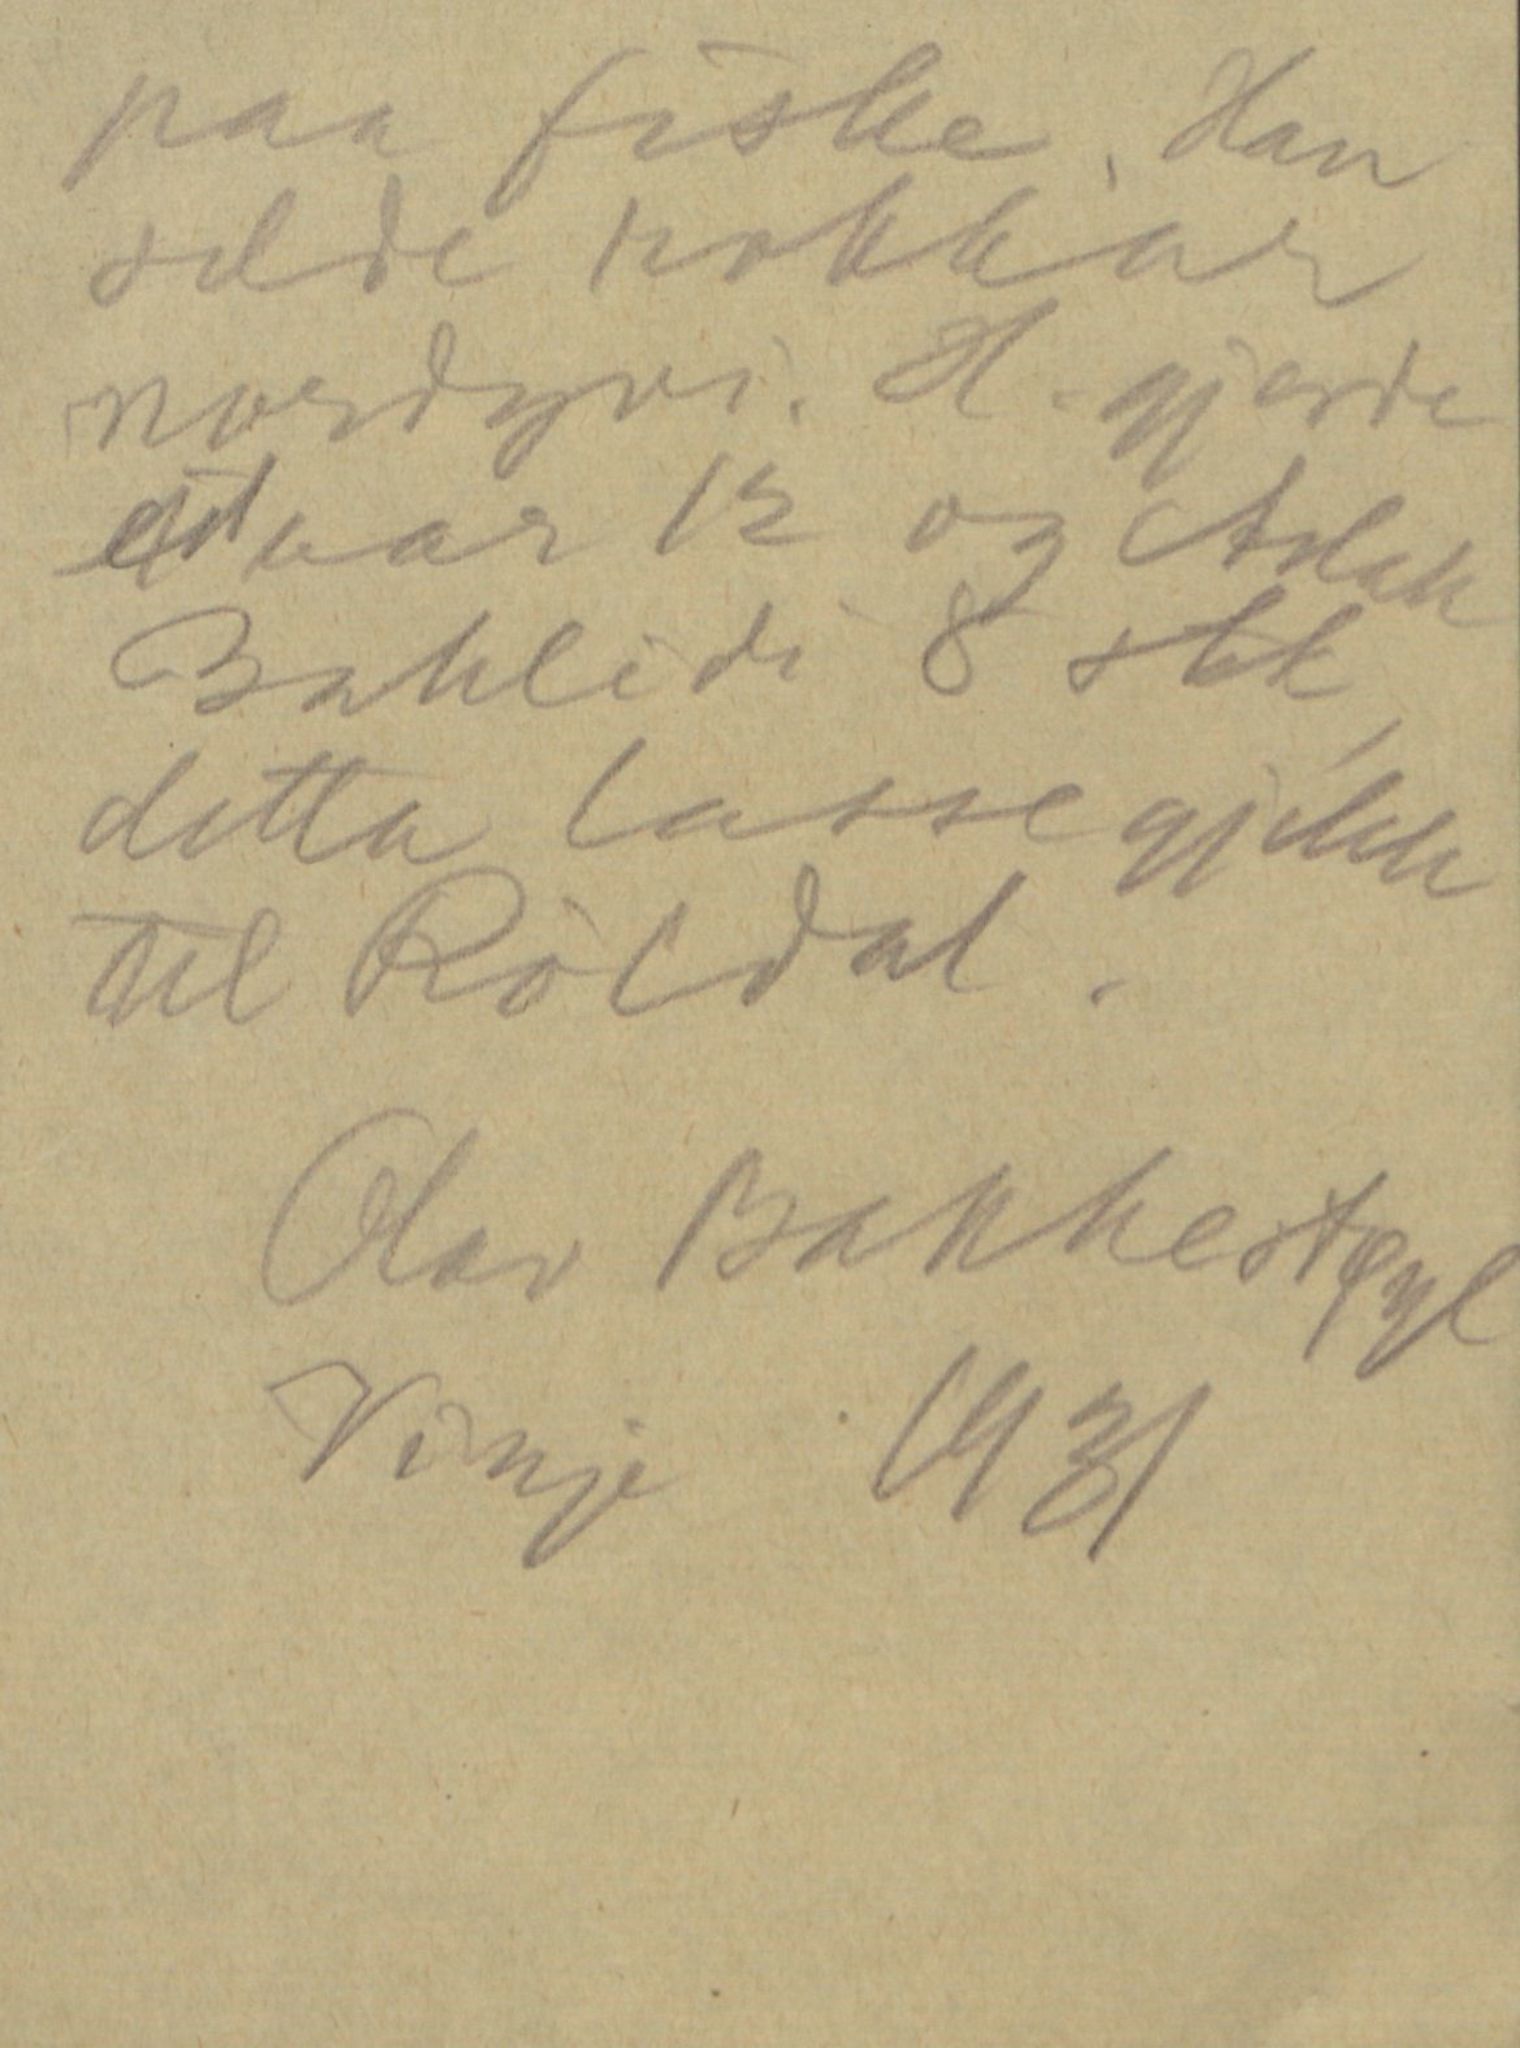 paa fiske. Han
selde rokkar
nordyvi. H. gjorde
et aar 12 og Aslak
Baklidi 8 stk,
detta lasse gjekk
til Röldal.
Olav Bakkestøyl
Vinje 1931